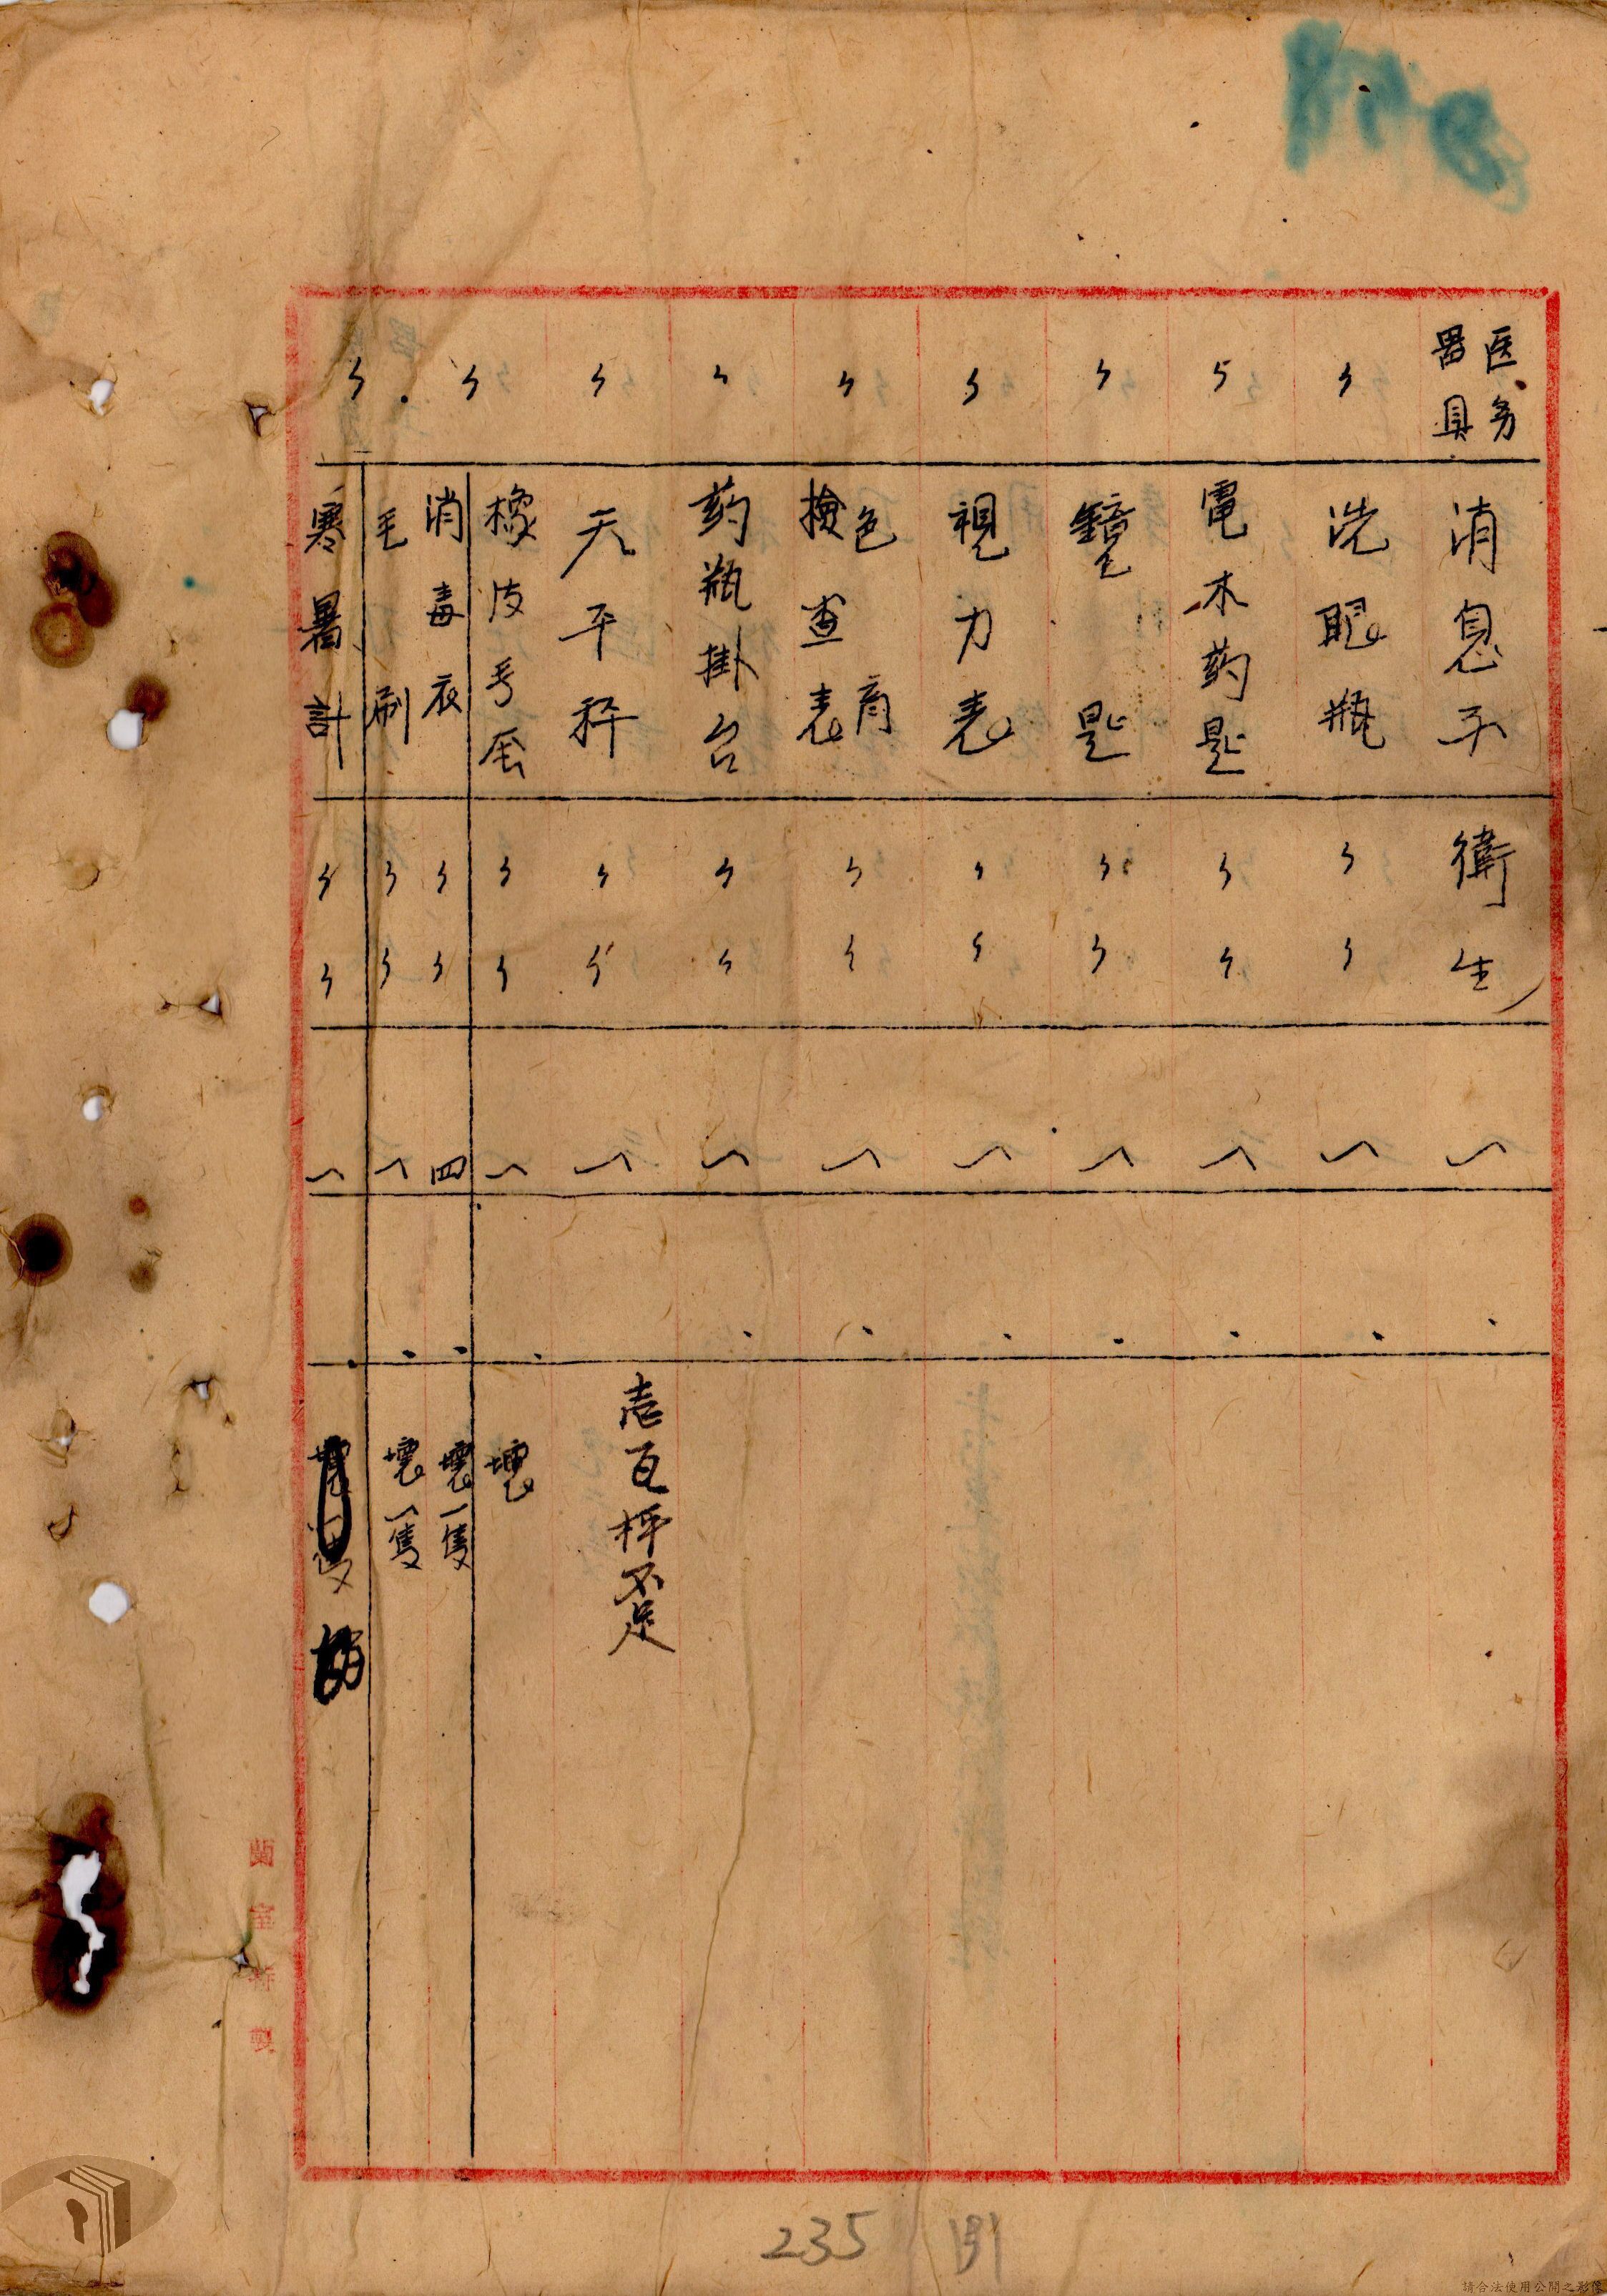 医务器具 消息子 衛生 一
〃 洗眼瓶 〃 〃 一
〃 電木药匙 〃 〃 一
〃 匙 〃 〃 一
〃 視力表 〃 〃 一
〃 色盲檢查表 〃 〃 一
〃 药瓶掛台 〃 〃 一
〃 天平秤 〃 〃 一 瓦秤不足
橡皮手 〃 〃 一 壞
〃 消毒衣 〃 〃 四 壞一隻
毛刷 〃 〃 一 壞一隻
〃 寒暑計 〃 〃 一
蘭室特製
235
請合法使用公開之影像